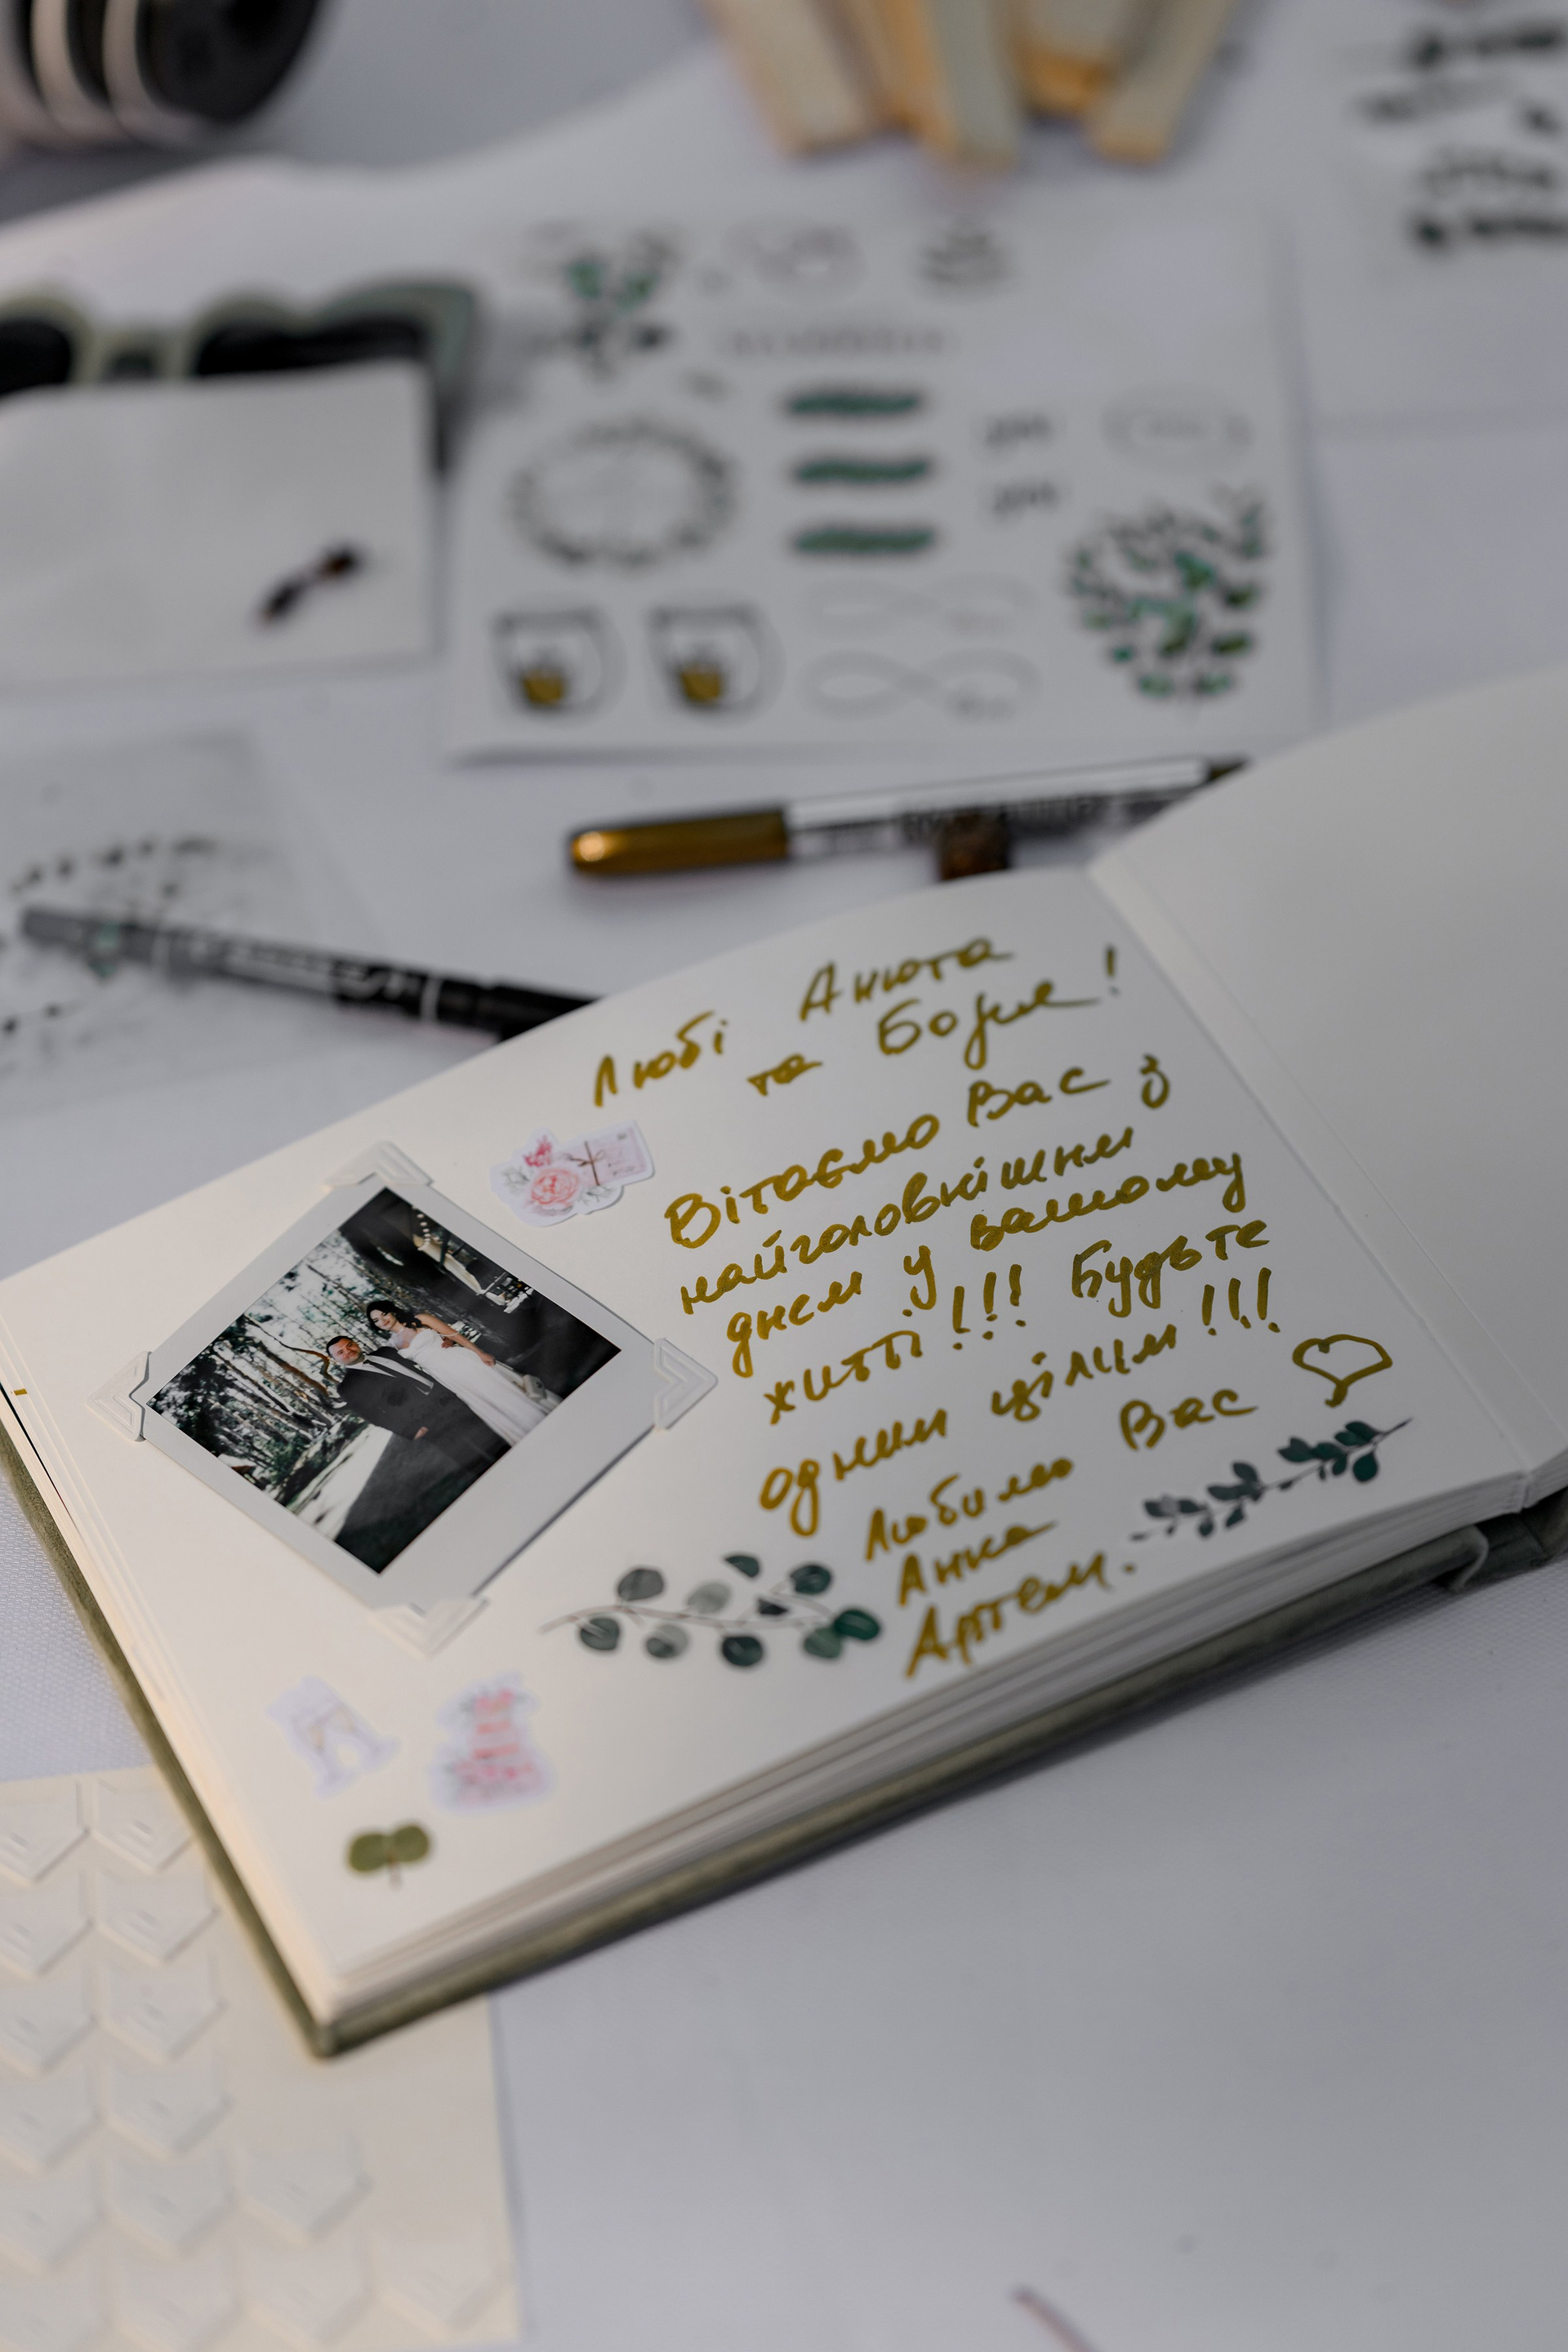 Любі Анюта
та Боря!
Вітаємо Вас з
найголовнішим
днем у вашому
житті!!! Будьте
одним цілим!!!
Любимо Вас
Анка
Артем.